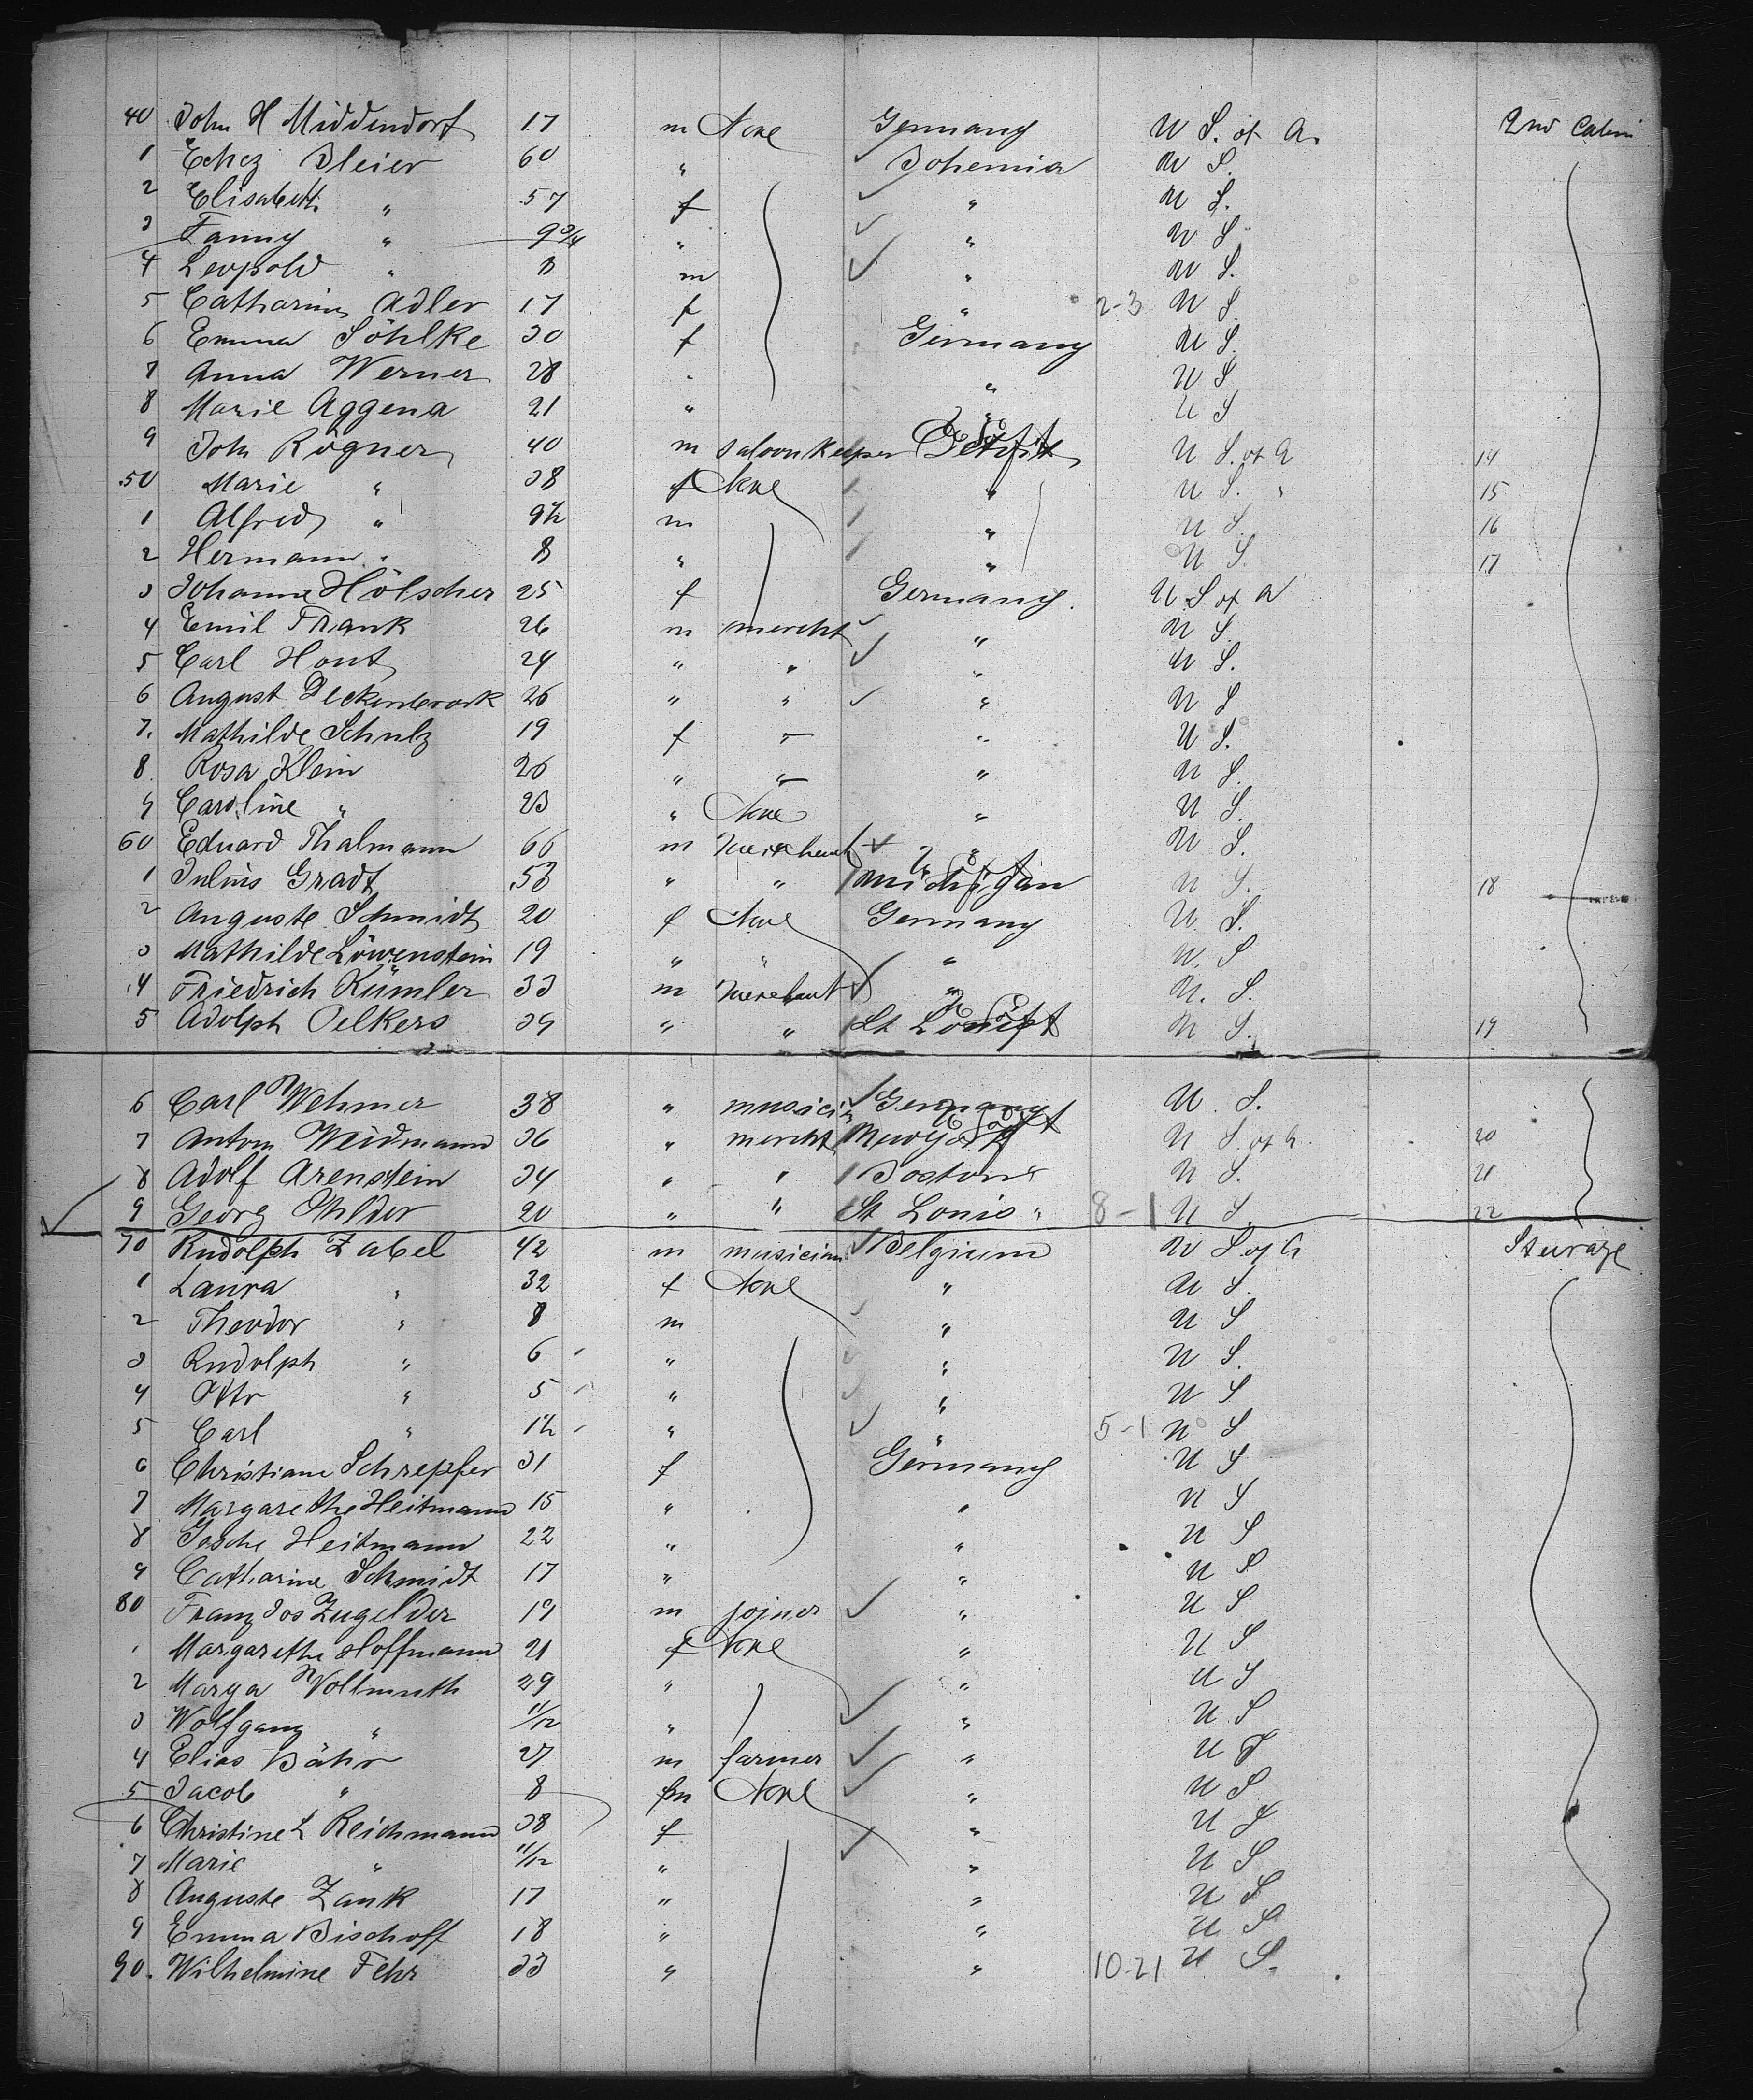 40 John H Middendorf 17 m None Germany U S. of A. 2nd Cabin
1 Bleier 60 " Bohemia U S.
2 Elisabeth " 57 f " U S.
3 Fanny " 9 3/4 " " U S.
4 Leopold " 8 m " U S.
5 Catharina Adler 17 f " 2-3 U S.
6 Emma Söhlke 30 f Germany U S.
7 Anna Werner 28 " " U S
8 Marie Aggena 21 " " U S
9 Joh Rögner 40 m saloonkeeper Detroit U S. of A 14
50 Marie " 38 f None " U S. " 15
1 Alfred " 9 1/2 m " U S. 16
2 Hermann " 8 " " U S. 17
3 Johanna Hölscher 25 f Germany. U S of A
4 Emil Frank 26 m mercht " U S.
5 Carl Hont 24 " " " U S.
6 August 26 " " " U S
7. Mathilde Schulz 19 f " " U S.
8. Rosa Klein 26 " " " U S.
9 Caroline " 23 " None " U S.
60 Eduard Thalmann 66 m Merchant " U S.
1 Julius Gradt 53 " " Michigan U S. 18
2 Auguste Schmidt 20 f None Germany U. S.
3 Mathilde Löwenstein 19 " " " U. S
4 Friedrich Kümler 33 m Merchant " U. S.
5 Adolph Oelkers 39 " " St Louis U S. 19
6 Carl Wehmer 38 " musici Germany U. S.
7 Anton Weidmann 36 " mercht New York U S. of A 20
8 Adolf Arenstein 34 " " Boston " U S. 21
9 Georg 20 " " St Louis " 8-1 U S. 22
70 Rudolph Zabel 42 m musician Belgium U S. of A Steurage
1 Laura " 32 f None " U S.
2 Theodor " 8 m " U S
3 Rudolph " 6 " " U S.
4 Otto " 5 " " U S
5 Carl " 1 1/2 " " 5-1 U S
6 Christiane Schrepfer 31 f Germany U S
7 Margarethe Heitmann 15 " " U S
8 Gesche Heitmann 22 " " U S
9 Catharine Schmidt 17 " " U S
80 Franz Jos Zugelder 19 m joiner " U S
1 Margarethe Hoffmann 21 f None " U S
2 Marga Vollmuth 29 " " U S
3 Wolfgang " 11/12 " " U S
4 Elias Bähr 27 m farmer " U S
5 Jacob " 8 m None " U S
6 Christine L Reichmann 38 f " U S
7 Marie " 11/12 " " U S
8 Auguste Zank 17 " " U S
9 Emma Bischoff 18 " " U S
90. Wilhelmine Fehr 33 " " 10-21. U S.